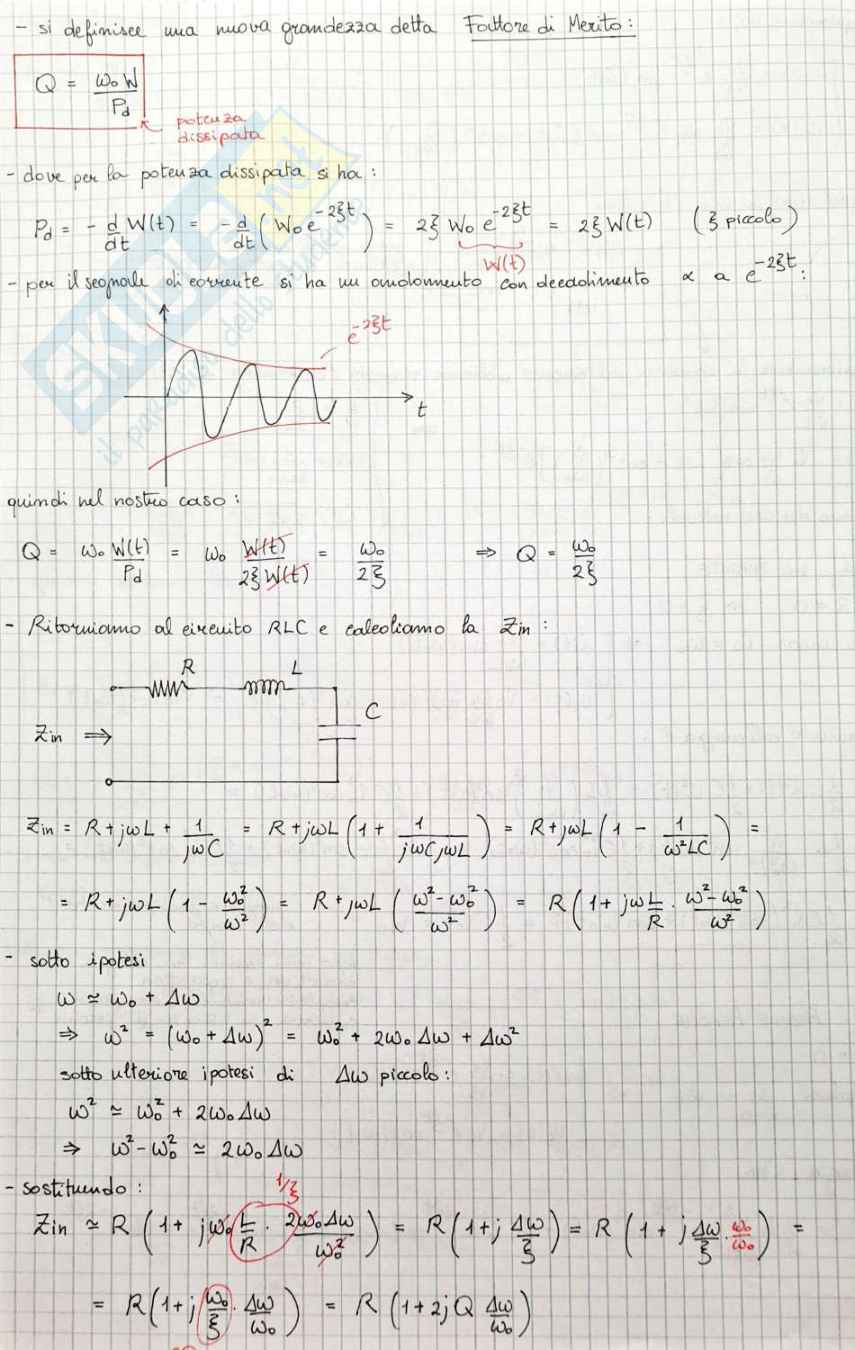 - si definisce una nuova grandezza detta Fattore di Merito:
Q = ω₀W / P_d
potenza
dissipata
- dove per la potenza dissipata si ha:
P_d = - d/dt W(t) = - d/dt (W₀ e^{-2ξt}) = 2ξ W₀ e^{-2ξt} = 2ξ W(t) (ξ piccolo)
W(t)
- per il segnale di corrente si ha un andamento con decadimento ∝ a e^{-2ξt}:
e^{-2ξt}
t
quindi nel nostro caso:
Q = ω₀ W(t)/P_d = ω₀ W(t)/2ξW(t) = ω₀/2ξ ⇒ Q = ω₀/2ξ
- Ritorniamo al circuito RLC e calcoliamo la Zin:
R L
C
Zin ⇒
Zin = R + jωL + 1/jωC = R + jωL (1 + 1/jωCjωL) = R + jωL (1 - 1/ω²LC) =
= R + jωL (1 - ω₀²/ω²) = R + jωL (ω² - ω₀²/ω²) = R (1 + jω L/R · ω² - ω₀²/ω²)
- sotto ipotesi
ω ≃ ω₀ + Δω
⇒ ω² = (ω₀ + Δω)² = ω₀² + 2ω₀Δω + Δω²
sotto ulteriore ipotesi di Δω piccolo:
ω² ≃ ω₀² + 2ω₀Δω
⇒ ω² - ω₀² ≃ 2ω₀Δω
- sostituendo:
1/ξ
Zin ≃ R (1 + jω₀ L/R · 2ω₀Δω/ω₀²) = R (1 + j Δω/ξ) = R (1 + j Δω/ξ · ω₀/ω₀) =
= R (1 + j ω₀/ξ · Δω/ω₀) = R (1 + 2jQ Δω/ω₀)
SKUOLA.net
il paradiso dello studente